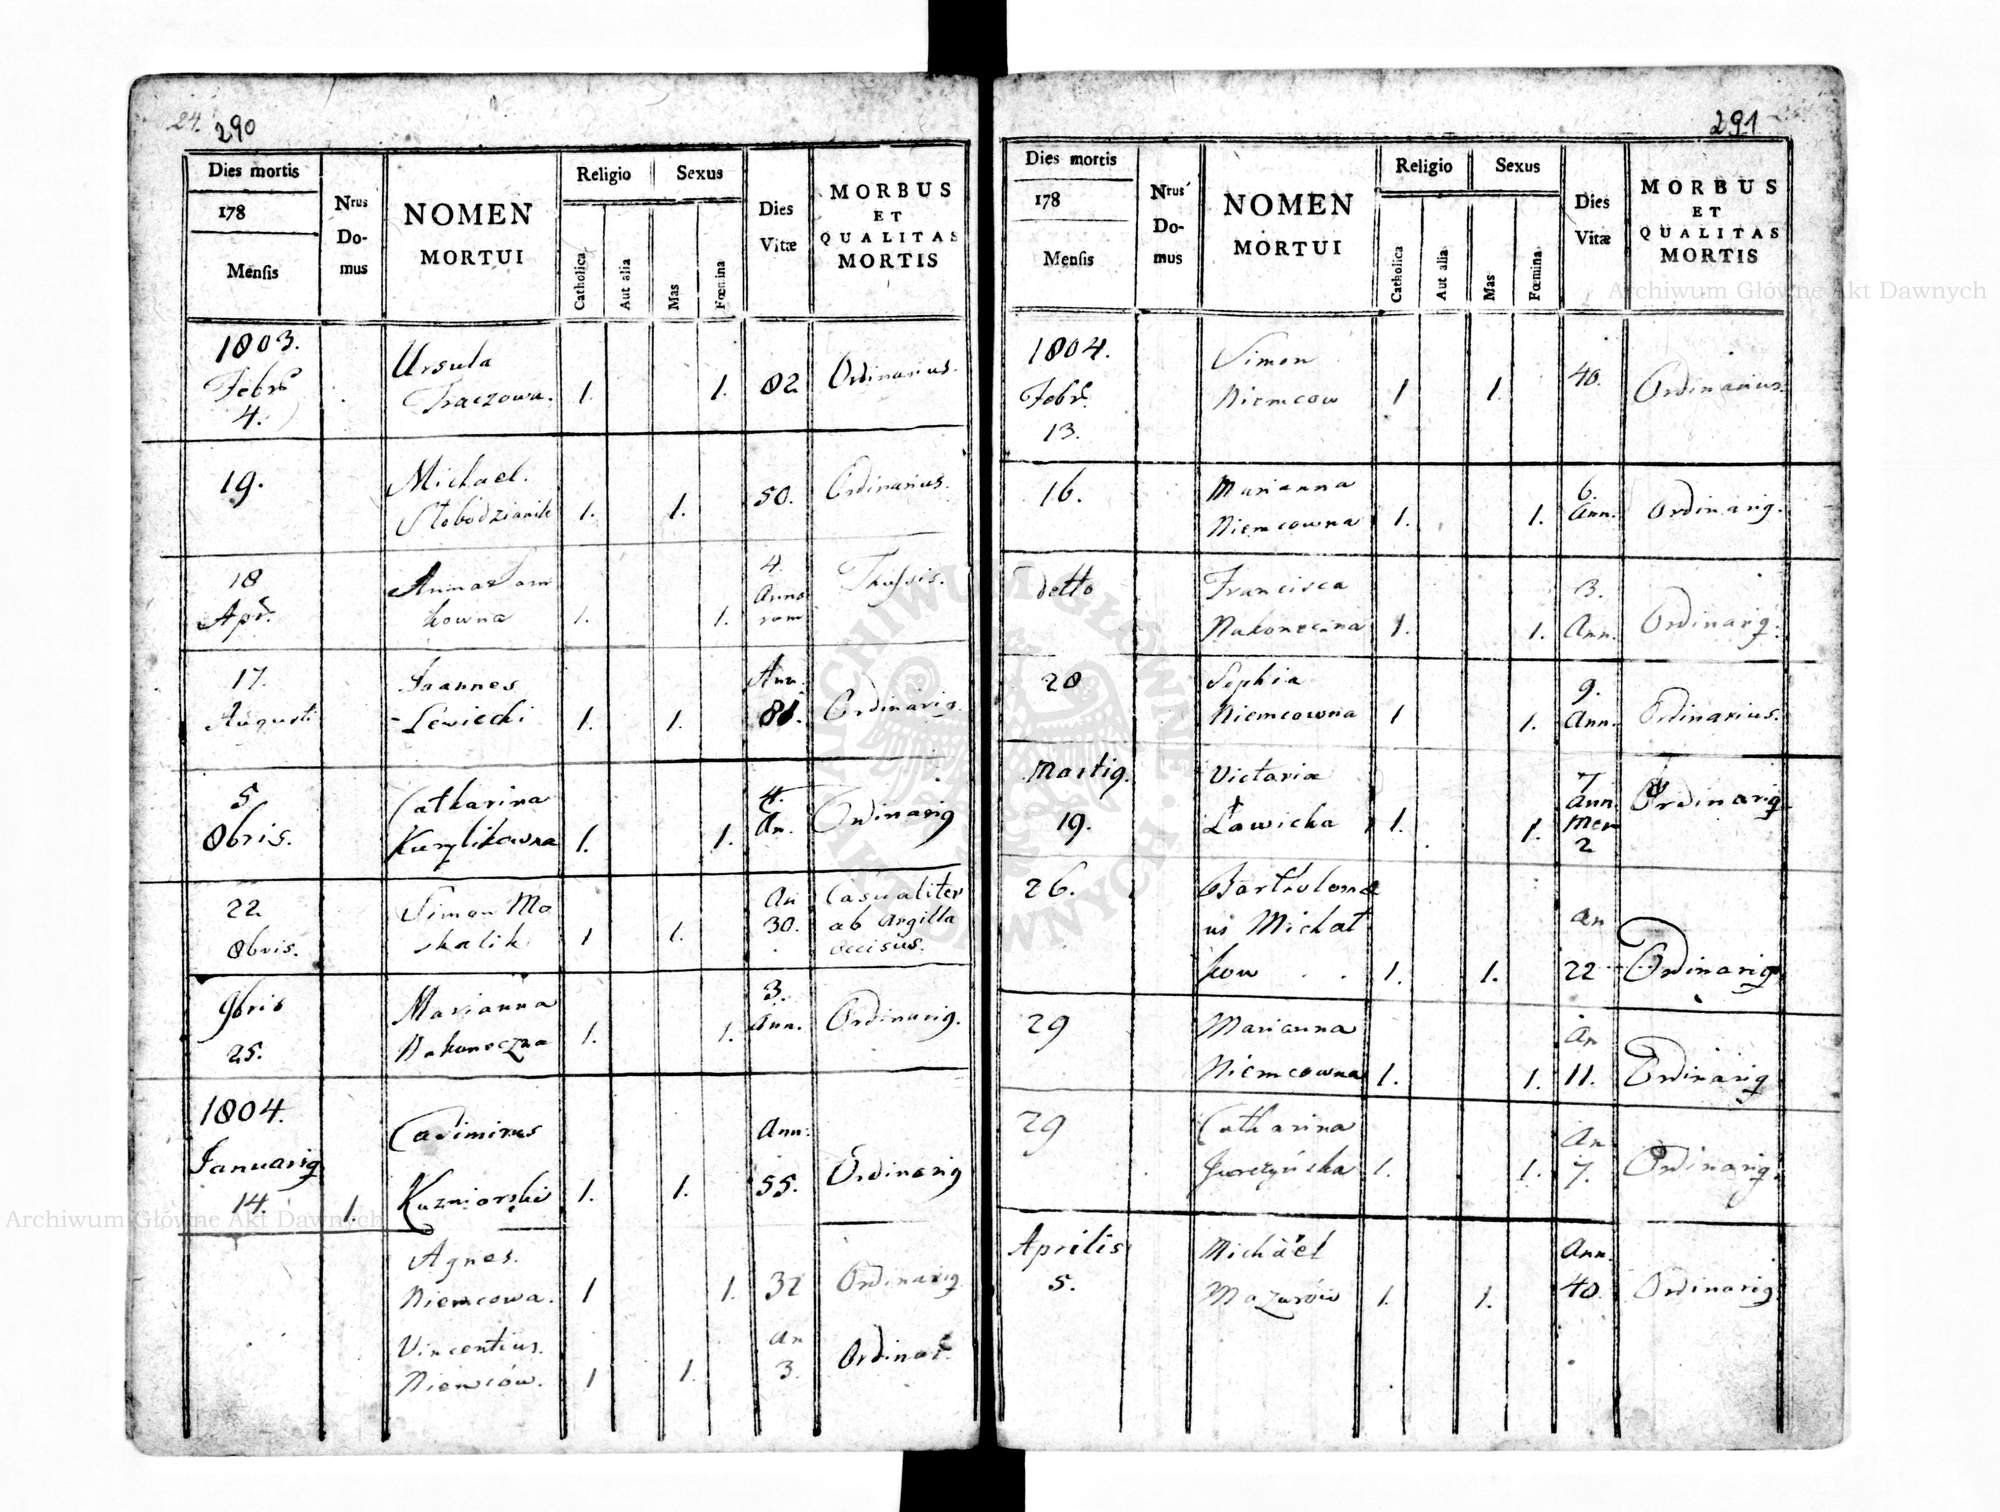 24. 290
Dies mortis
178
Mensis
Nrus Do- mus
NOMEN
MORTUI
Religio
Sexus
Catholica
Aut alia
Mas
Fœmina
Dies
Vitæ
MORBUS
ET
QUALITAS
MORTIS
1803.
Febr.
4.
Ursula
Traczowa. 1. 1. 82 Ordinarius.
19. Michael.
Słobodzianik 1. 1. 50. Ordinarius.
18 4.
Apr. Anno
kowna 1. 1. rum
17. Joannes Ann.
Augusti Lewicki 1. 1. 81. Ordinariq.
5 Catharina 4.
8bris. Kurylikowna 1. 1. An. Ordinariq
22 Simon Mo An Casualiter
8bris. skalik 1 1. 30. ab Argilla
occisus.
9bris Marianna 3.
25. Nakoneczna 1. 1. Ann. Ordinariq.
1804.
Januariq Casimirus Ann:
14. 1. Kuzniorski 1. 1. 55. Ordinariq
Agnes.
Niemcowa. 1 1. 32 Ordinariq
Vincentius. An
Niemców. 1 1. 3. Ordinar.
291
Dies mortis
178
Mensis
Nrus Do- mus
NOMEN
MORTUI
Religio
Sexus
Catholica
Aut alia
Mas
Fœmina
Dies
Vitæ
MORBUS
ET
QUALITAS
MORTIS
1804.
Febr. Simon
13. Niemcow 1 1. 40. Ordinarius.
16. Marianna 6.
Niemcowna 1. 1. Ann. Ordinariq.
detto Francisca 3.
Nakonecina 1. 1. Ann. Ordinariq.
20 Sophia 9.
Niemcowna 1 1. Ann. Ordinarius.
Martiq. Victoria 7
19. Ławicka 1. 1. Ann. Ordinariq
Men
2
26. Bartholomæ
us Michał An
kow 1. 1. 22 Ordinariq
29 Marianna An
Niemcowna 1. 1. 11. Ordinariq
29 Catharina An
1. 1. 7. Ordinariq.
Aprilis Michäel Ann.
5. Mazurów 1. 1. 40. Ordinariq
Archiwum Główne Akt Dawnych
Archiwum Główne Akt Dawnych
ARCHIWUM GŁÓWNE AKT DAWNYCH